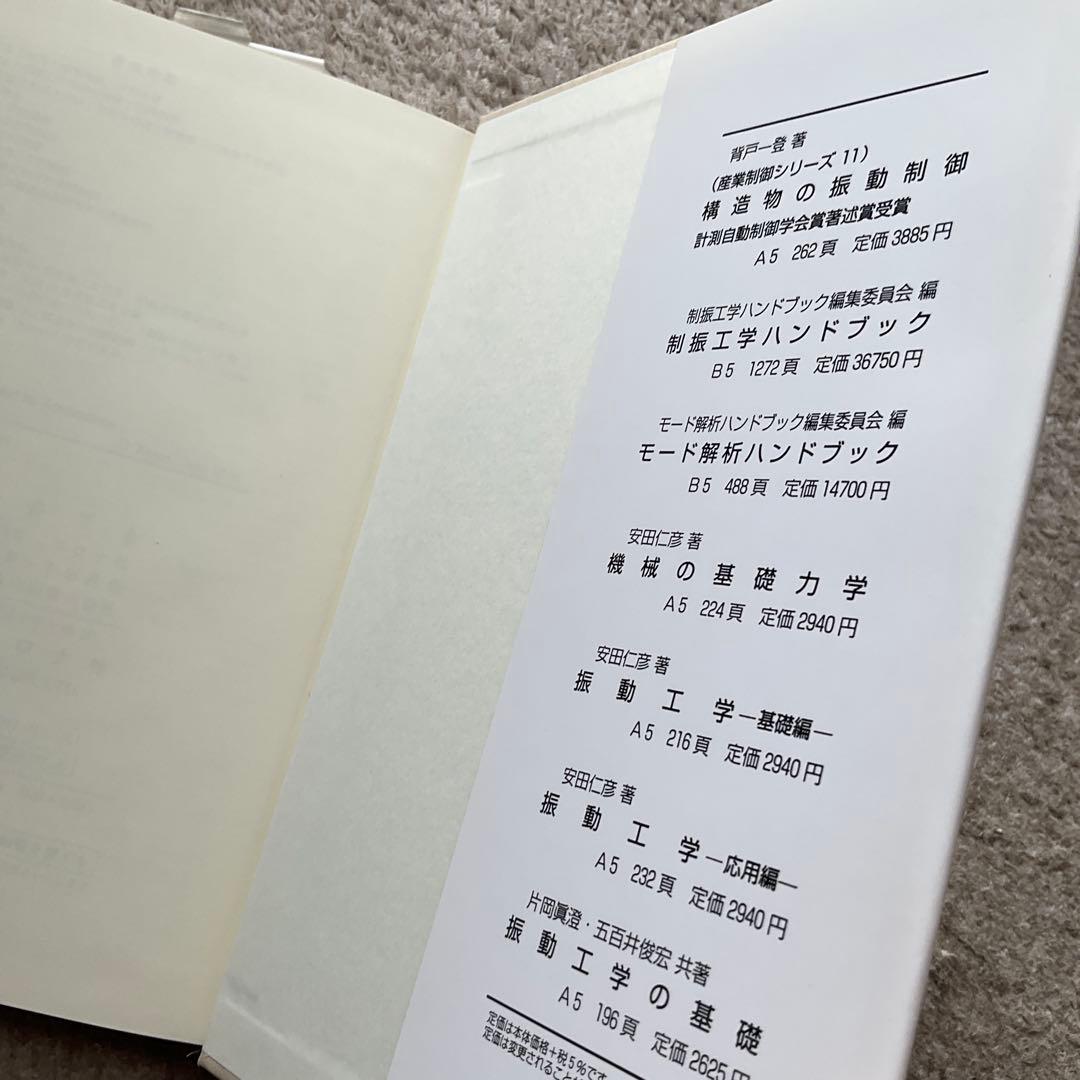 背戸一登 著
(産業制御シリーズ 11)
構造物の振動制御
計測自動制御学会賞著述賞受賞
A5 262頁 定価3885円
制振工学ハンドブック編集委員会 編
制振工学ハンドブック
B5 1272頁 定価36750円
モード解析ハンドブック編集委員会 編
モード解析ハンドブック
B5 488頁 定価14700円
安田仁彦 著
機械の基礎力学
A5 224頁 定価2940円
安田仁彦 著
振動工学―基礎編―
A5 216頁 定価2940円
安田仁彦 著
振動工学―応用編―
A5 232頁 定価2940円
片岡眞澄・五百井俊宏 共著
振動工学の基礎
A5 196頁 定価2625円
定価は本体価格+税5%です
定価は変更されること